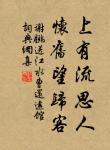 上有流思人
懷舊望歸客
謝朓送江水曹還遠館
詞典網集